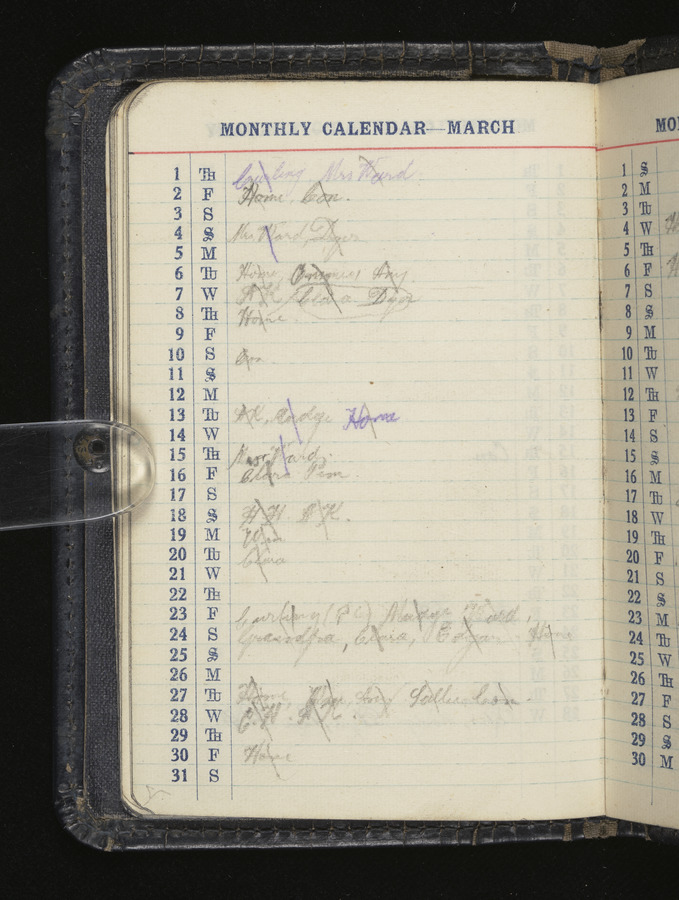 MONTHLY CALENDAR—MARCH
1 Th Mrs Ward.
2 F Home, Con.
3 S
4 S Mrs Ward, Dyer
5 M
6 Tu Home, Amy
7 W A K, Clara Dyer
8 Th Home.
9 F
10 S Con.
11 S
12 M
13 Tu AK, Madge Home
14 W
15 Th Mrs Ward.
16 F Clara
17 S
18 S A K.
19 M
20 Tu Clara
21 W
22 Th
23 F (P C) Madge, Ward,
24 S Grandpa, Clara, Home
25 S
26 M
27 Tu Home,
28 W A K
29 Th
30 F Home
31 S
MO
1 S
2 M
3 Tu
4 W
5 Th
6 F
7 S
8 S
9 M
10 Tu
11 W
12 Th
13 F
14 S
15 S
16 M
17 Tu
18 W
19 Th
20 F
21 S
22 S
23 M
24 Tu
25 W
26 Th
27 F
28 S
29 S
30 M